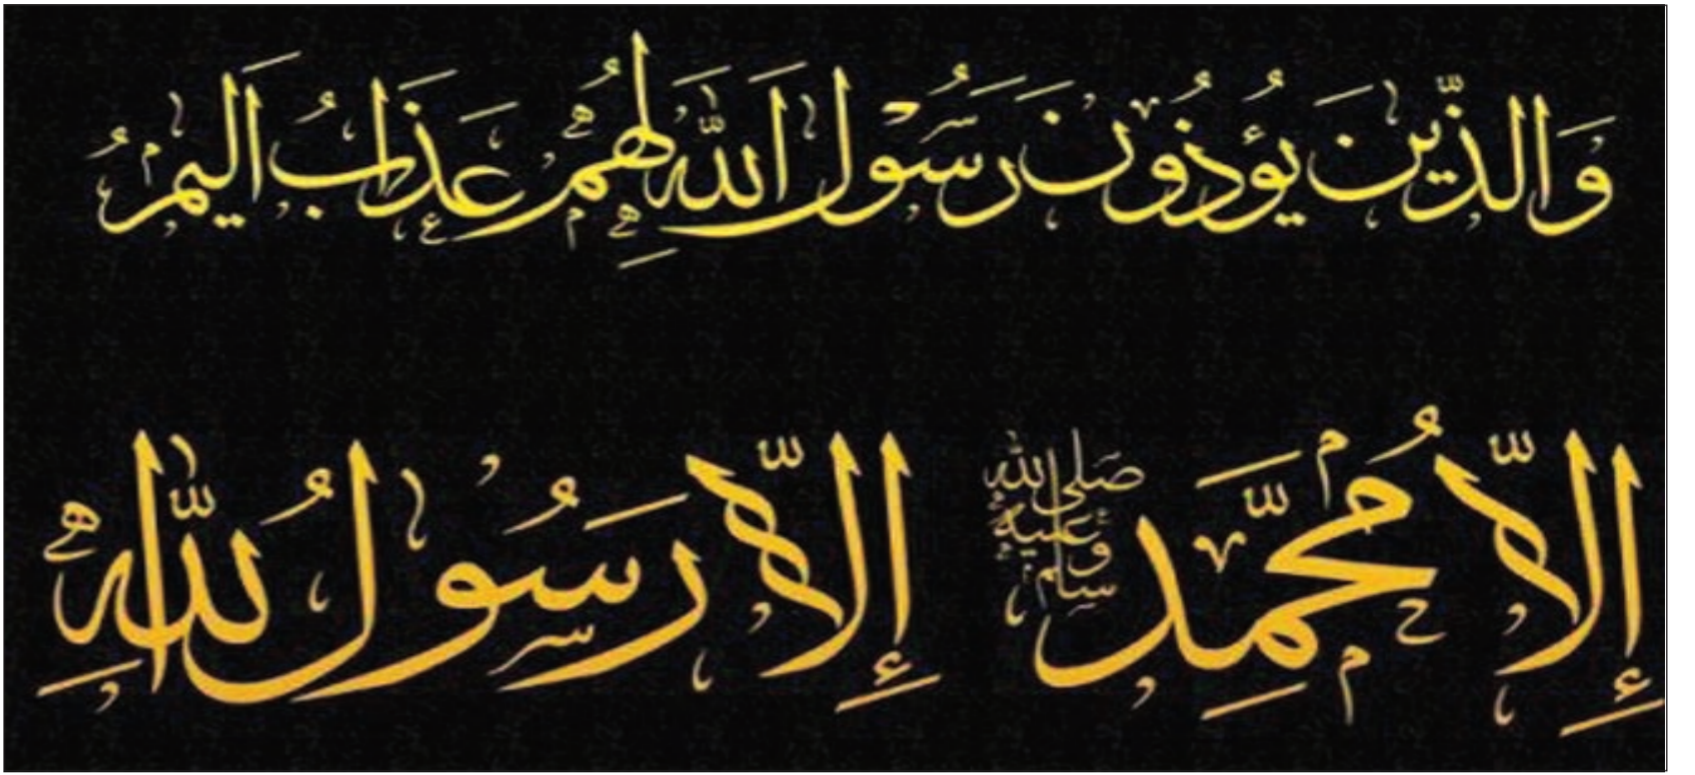 وَالَّذِينَ يُؤْذُونَ رَسُولَ اللَّهِ لَهُمْ عَذَابٌ أَلِيمٌ
إِلَّا مُحَمَّد صلى الله عليه وسلم إِلَّا رَسُولُ اللَّهِ